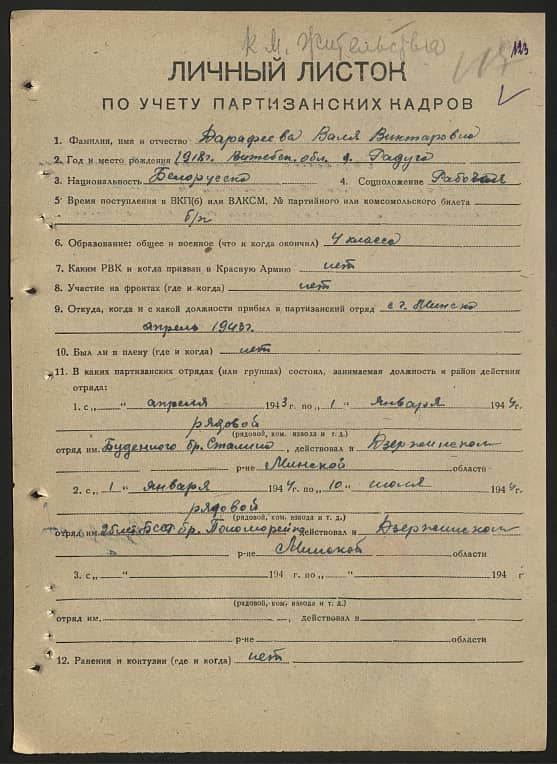 к м. жительства
123
ЛИЧНЫЙ ЛИСТОК
ПО УЧЕТУ ПАРТИЗАНСКИХ КАДРОВ
1. Фамилия, имя и отчество Дарафеева Валя Викторовна
2. Год и место рождения 1918г. Витебск. обл. д. Радуга
3. Национальность Белорусска 4. Соцположение Рабочая
5. Время поступления в ВКП(б) или ВЛКСМ, № партийного или комсомольского билета
б/п
6. Образование: общее и военное (что и когда окончил) 4 класса
7. Каким РВК и когда призван в Красную Армию нет
8. Участие на фронтах (где и когда) нет
9. Откуда, когда и с какой должности прибыл в партизанский отряд с г. Минска
апрель 1943г.
10. Был ли в плену (где и когда) нет
11. В каких партизанских отрядах (или группах) состоял, занимаемая должность и район действия
отряда:
1. с „ “ апреля 1943 г. по „ 1 “ января 1944г.
рядовой
(рядовой, ком. взвода и т. д.)
отряд им. Буденного бр. Сталина, действовал в Дзержинском
р-не Минской области
2. с „ 1 “ января 1944г. по „ 10 “ июля 1944г.
рядовой
(рядовой, ком. взвода и т. д.)
отряд им. 25 лет БССР бр. Пономаренко действовал в Дзержинском
р-не Минской области
3. с „ “ 194 г. по „ “ 194 г.
(рядовой, ком. взвода и т. д.)
отряд им. , действовал в
р-не области
12. Ранения и контузии (где и когда) нет